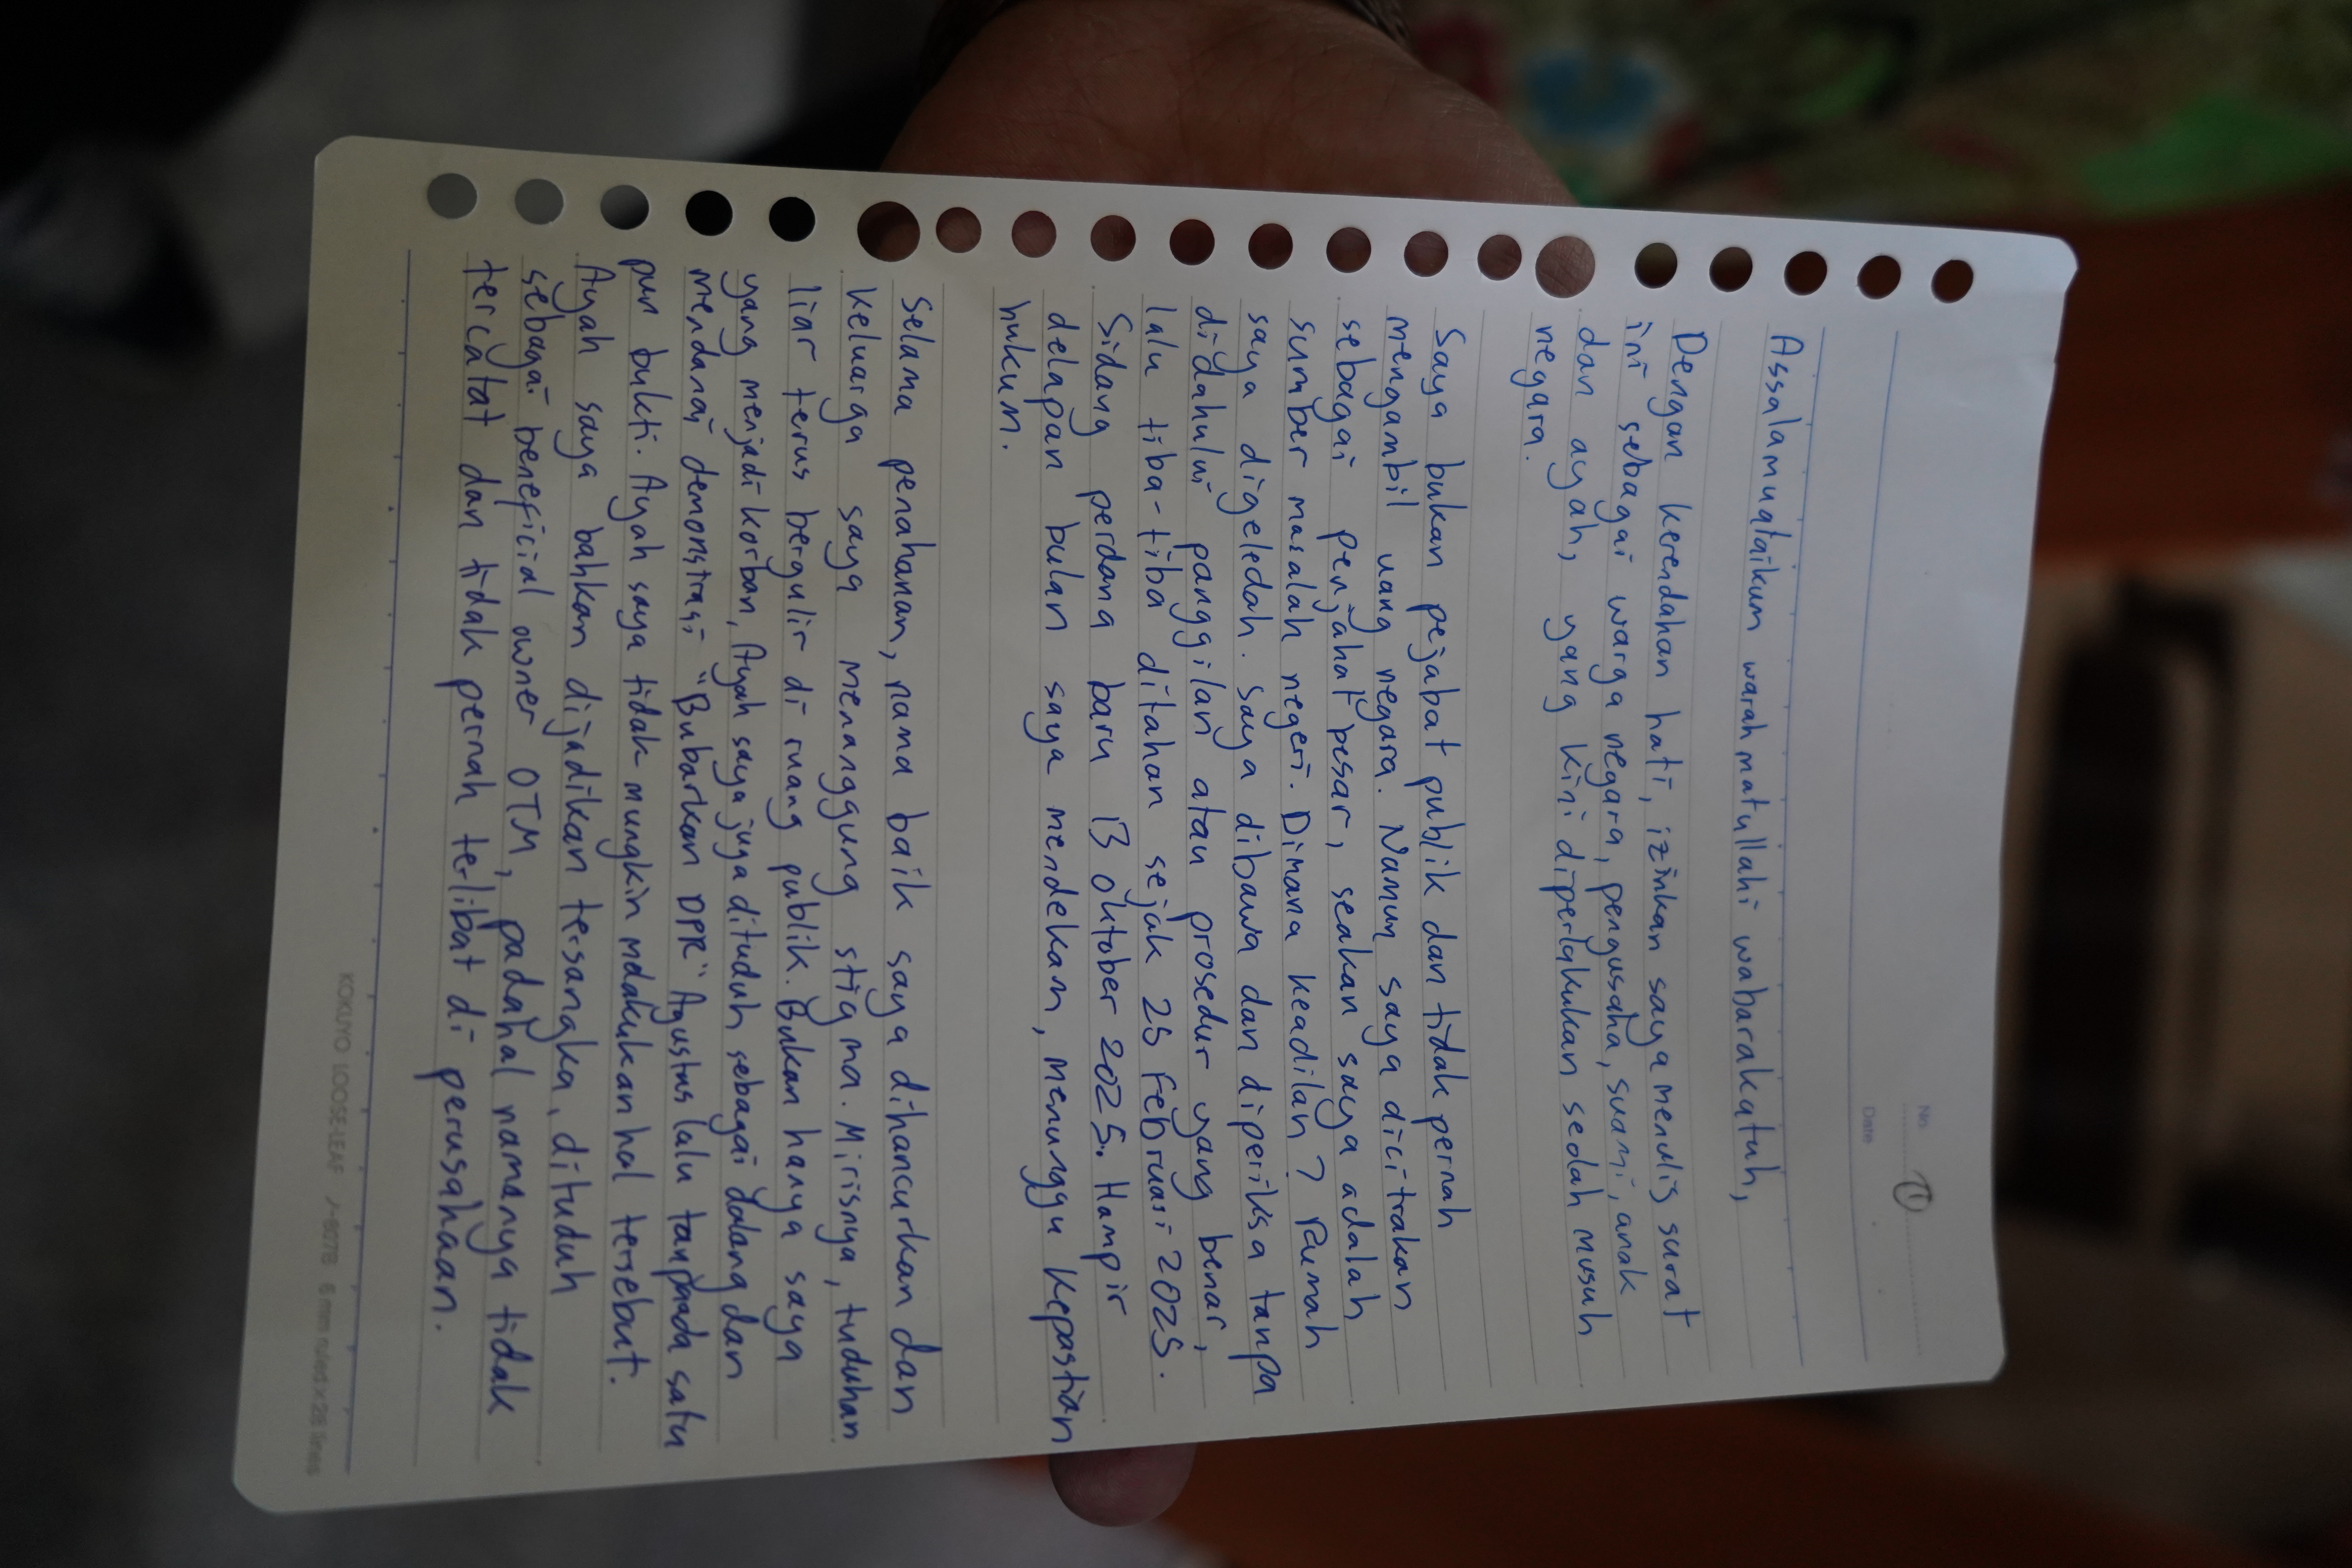 No. 1
Date
Assalamualaikum warahmatullahi wabarakatuh,
Dengan kerendahan hati, izinkan saya menulis surat
ini sebagai warga negara, pengusaha, suami, anak
dan ayah, yang kini diperlakukan sedah musuh
negara.
Saya bukan pejabat publik dan tidak pernah
mengambil uang negara. Namun saya dicitrakan
sebagai penjahat besar, seakan saya adalah
sumber masalah negeri. Dimana keadilan? Rumah
saya digeledah. Saya dibawa dan diperiksa tanpa
didahului panggilan atau prosedur yang benar,
lalu tiba-tiba ditahan sejak 25 Februari 2025.
Sidang perdana baru 13 Oktober 2025. Hampir
delapan bulan saya mendekam, menunggu kepastian
hukum.
Selama penahanan, nama baik saya dihancurkan dan
keluarga saya menanggung stigma. Mirisnya, tuduhan
liar terus bergulir di ruang publik. Bukan hanya saya
yang menjadi korban, Ayah saya juga dituduh sebagai dalang dan
mendanai demonstrasi "Bubarkan DPR" Agustus lalu tanpa ada satu
pun bukti. Ayah saya tidak mungkin melakukan hal tersebut.
Ayah saya bahkan dijadikan tersangka, dituduh
sebagai beneficial owner OTM, padahal namanya tidak
tercatat dan tidak pernah terlibat di perusahaan.
KOKUYO LOOSE-LEAF ノ-807B 6 mm ruled×26 lines